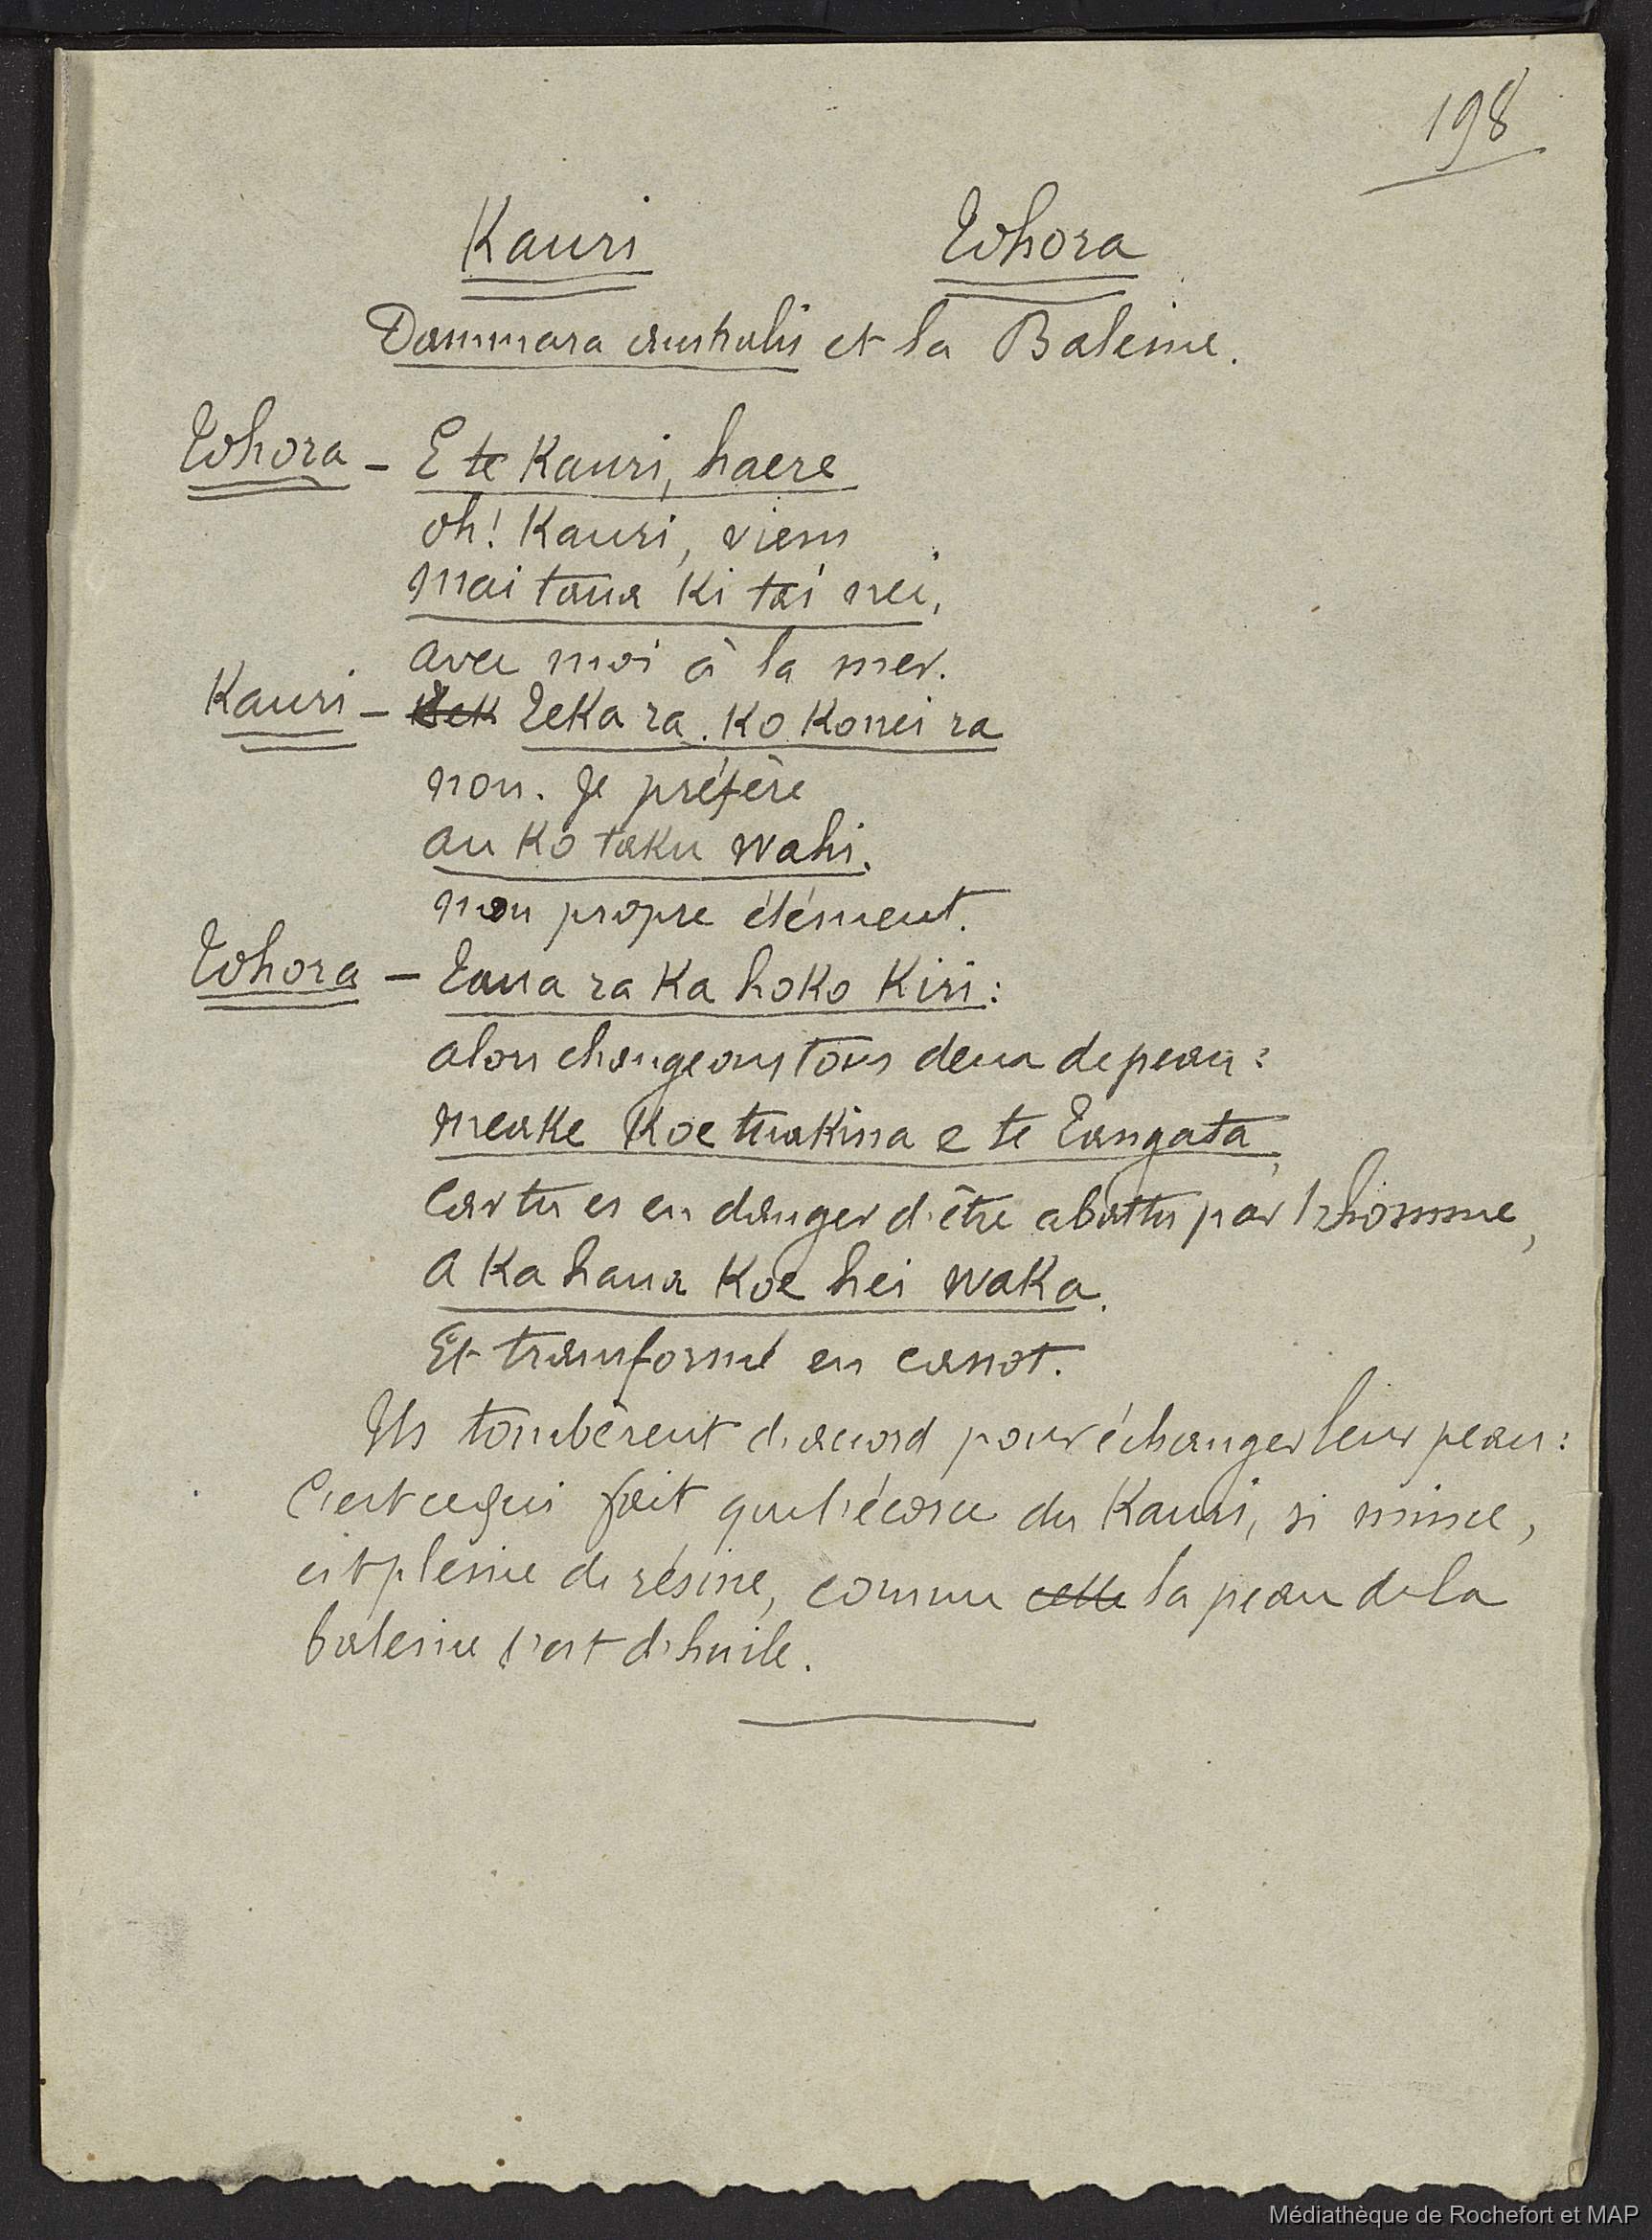 198
Kauri Tohora
Dammara australis et la Baleine.
Tohora - E te Kauri, haere
oh! Kauri, viens
mai taua ki tai nei,
avec moi à la mer.
Kauri - Teka ra. Ko Konei ra
non. Je préfère
au Ko taku wahi.
mon propre élément.
Tohora - Taua ra Ka hoko Kiri:
alors changeons tous deux de peau:
meake Koe tuakina e te Tangata,
Car tu es en danger d'être abattu par l'homme,
a Ka haua Koe hei waka.
Et transformé en canot.
Ils tombèrent d'accord pour échanger leur peau:
C'est ce qui fait que l'écorce du Kauri, si mince,
est pleine de résine, comme celle la peau de la
baleine l'est d'huile.
Médiathèque de Rochefort et MAP